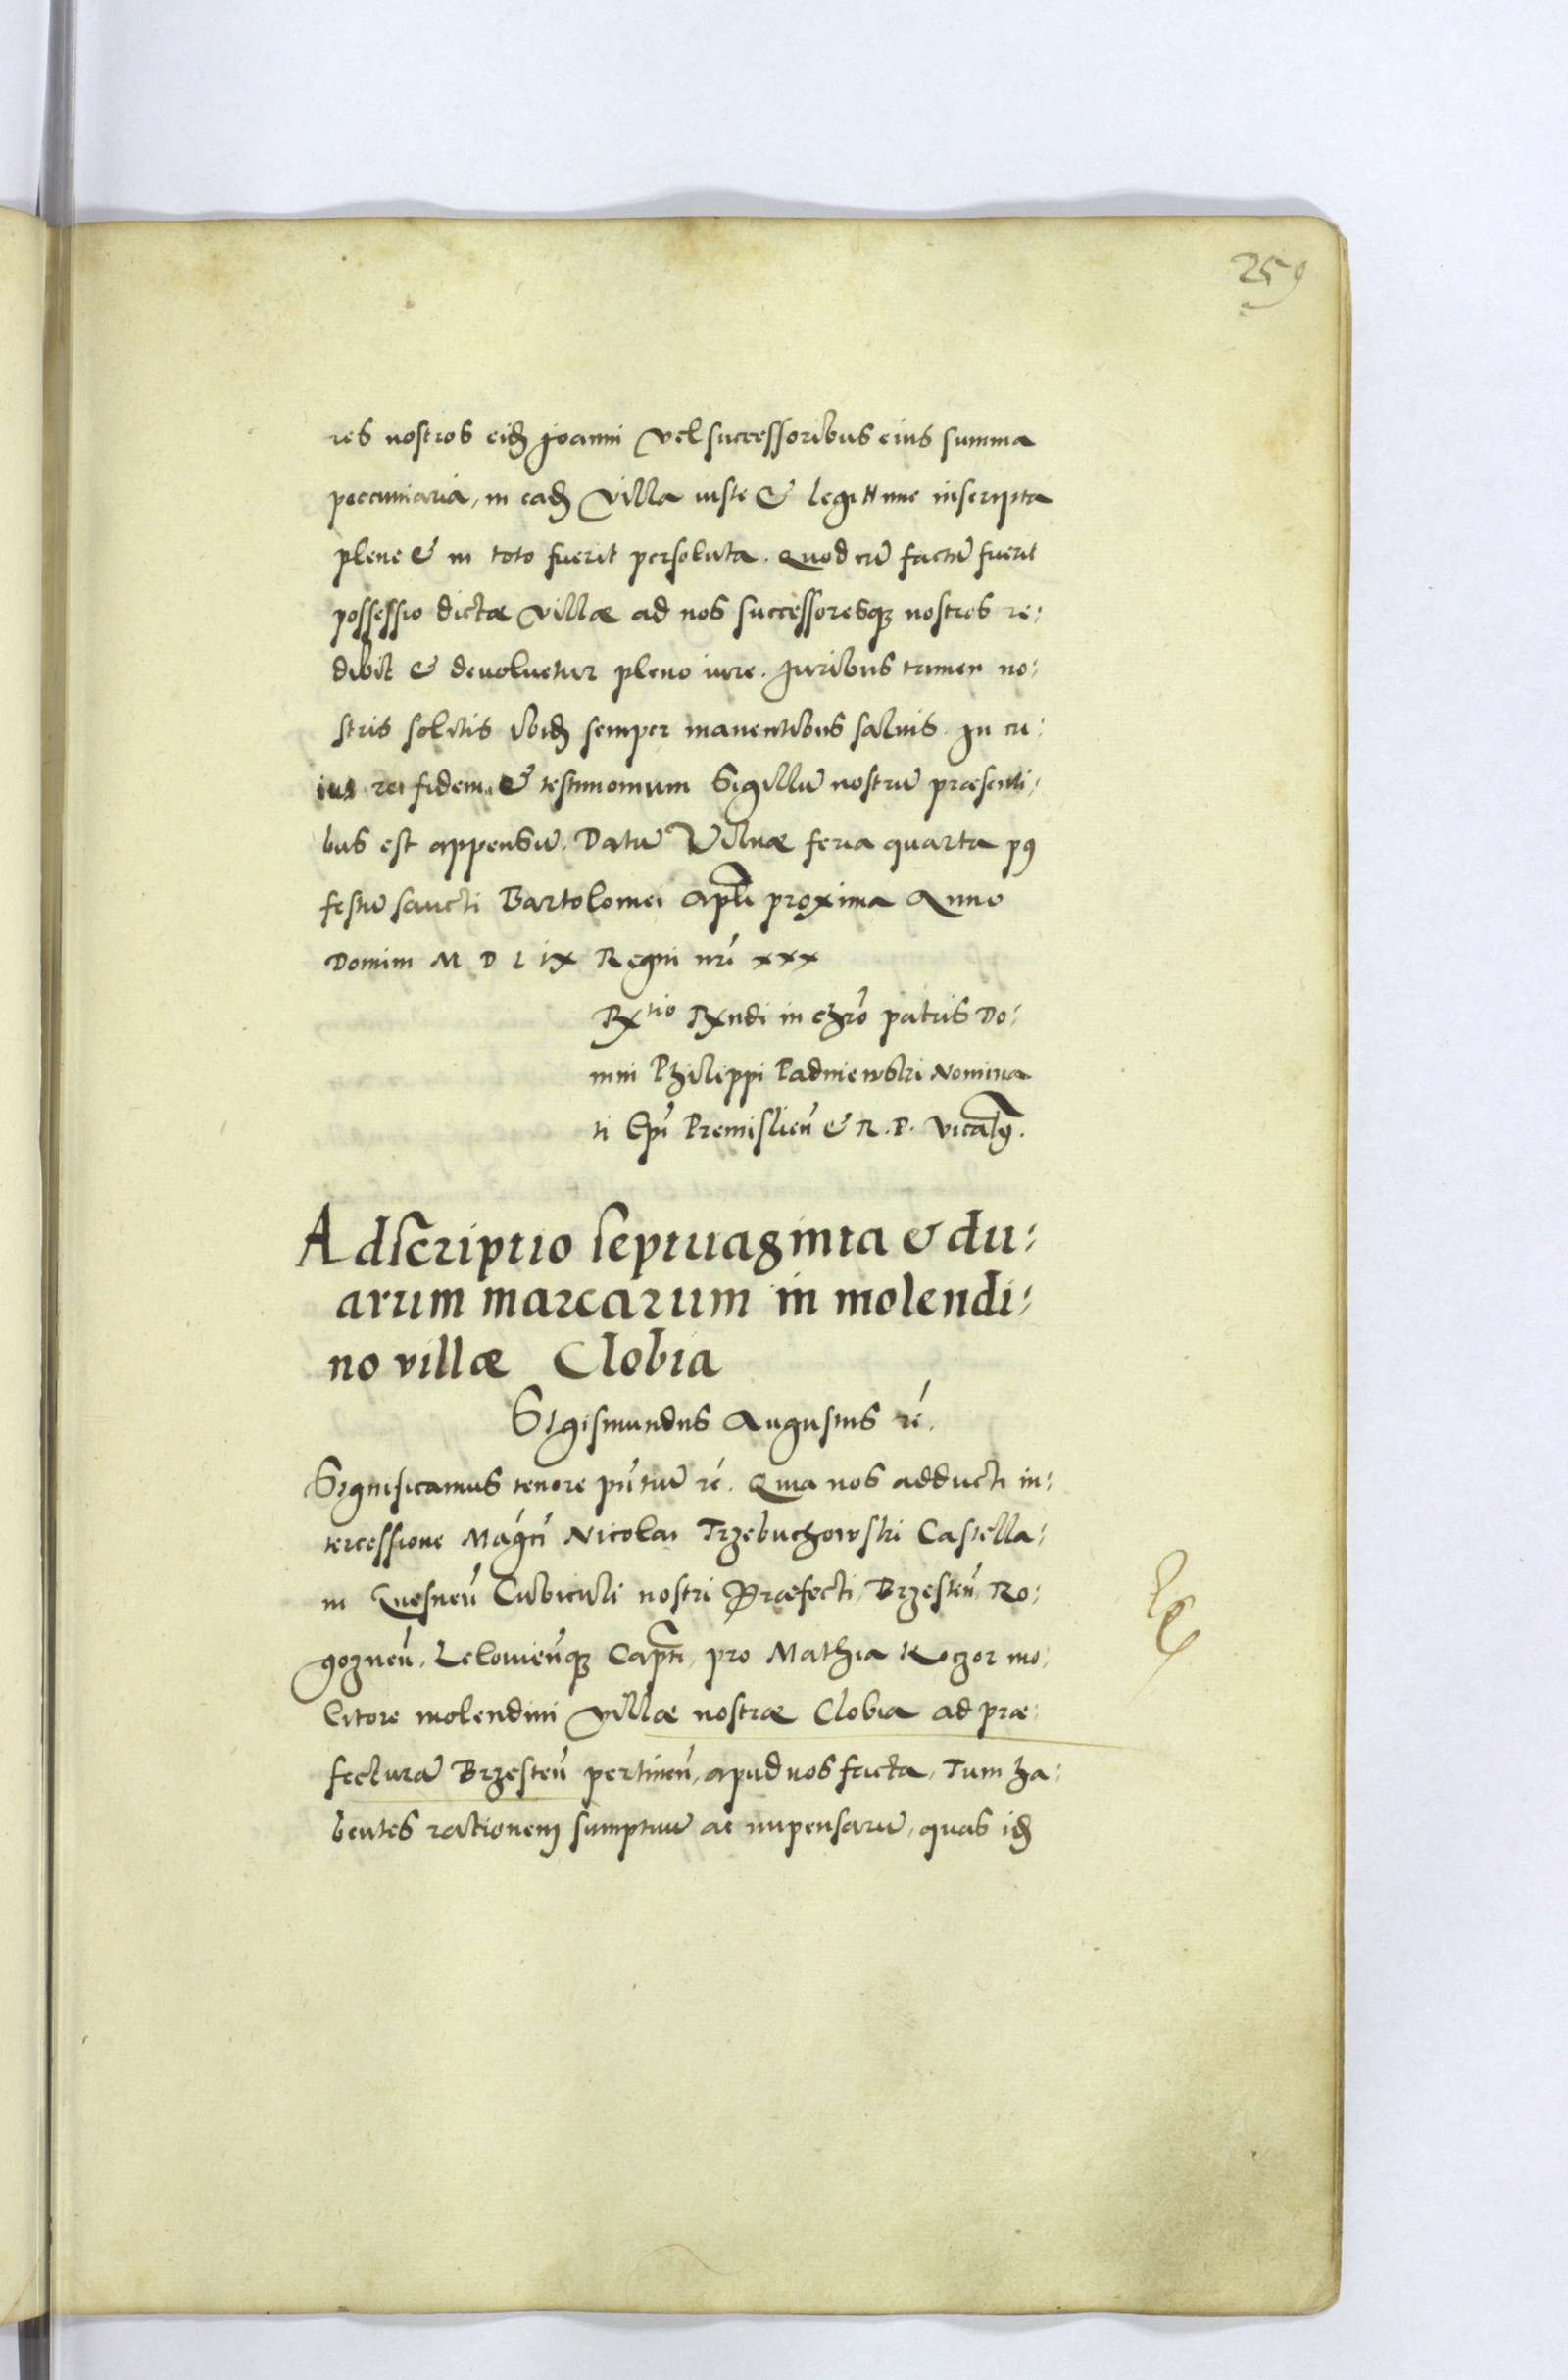 259
res nostros eidꝫ Joanni vel successoribus eius summa
pecuniaria, in eadꝫ villa iuste & legittime inscripta
plene & in toto fuerit persoluta. Quod cū factū fuerit
possessio dictæ villæ ad nos successoresqꝫ nostros re:
dibit & devoluetur pleno iure. Juribus tamen no:
stris solitis ibidꝫ semper manentibus salvis. In cu:
ius rei fidem & testimonium Sigillū nostrū præsenti:
bus est appensū. Datū Vilnæ feria quarta pꝰ
festū sancti Bartolomei Apli proxima Anno
Domini M D L IX Regni nri xxx
Rtio Rndi in chro patris Do:
mini Philippi Padniewski Nomina
ti Epi Premislien̄ & R. P. Vicacꝰ.
Adscriptio septuaginta & du:
arum marcarum in molendi:
no villæ Clobia
Sigismundus Augustus rē.
Significamus tenore pn̄tiū rē. Quia nos adducti in:
tercessione Mag̃ci Nicolai Trzebuchowski Castella:
ni Gnesnen̄ Cubiculi nostri Præfecti, Brzesten̄, Ro:
goznen̄, Lelovien̄qꝫ Captī, pro Mathia Koczor mo:
litore molendini villæ nostræ Clobia ad præ:
fecturā Brzesten̄ pertinen̄, apud nos facta, Tum ha:
bentes rationem sumptuū ac impensarū, quas idꝫ